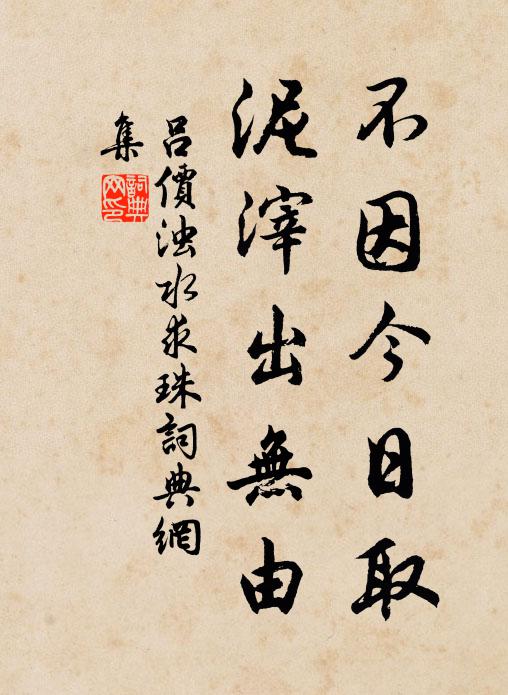 不因今日取
泥滓出無由
吕價浊水求珠詞典網
集
詞典
网印